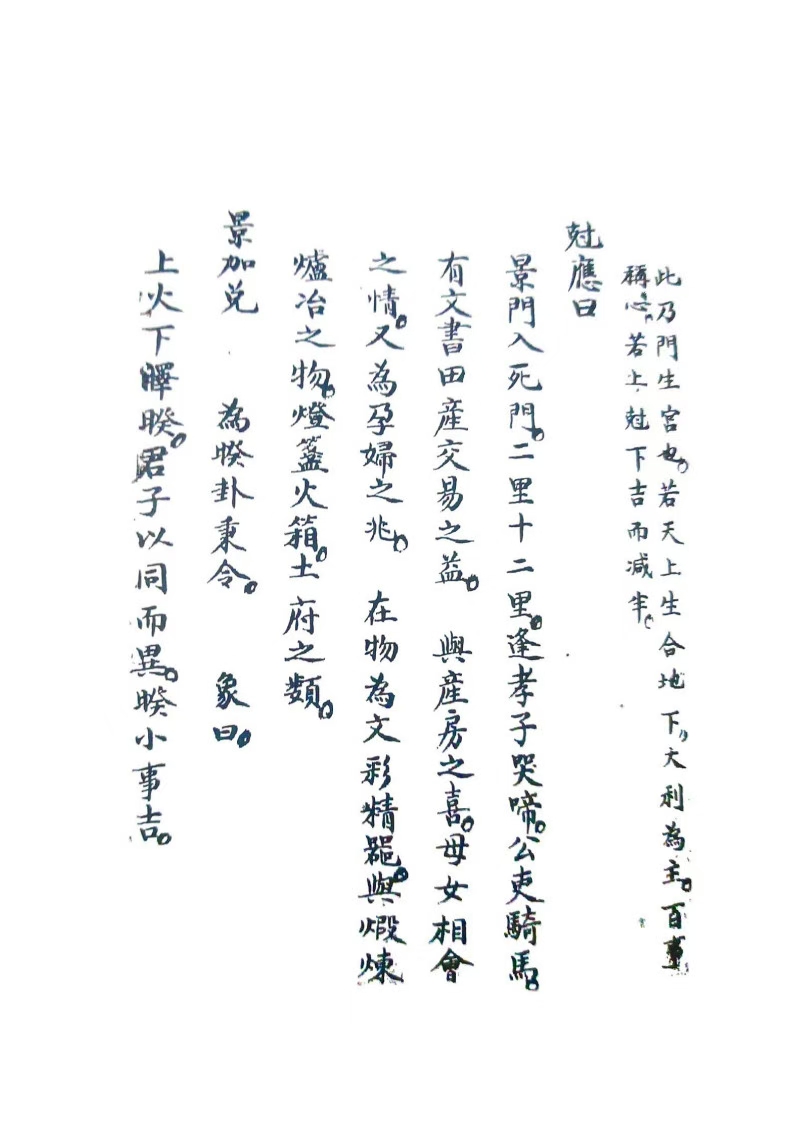 此乃門生宮也。若天上生合地下。大利為主。百事
稱心。若上尅下吉而减半。
尅應曰
景門入死門。二里十二里。逢孝子哭啼。公吏騎馬。
有文書田産交易之益。 與産房之喜。母女相會
之情。又為孕婦之兆。 在物為文彩精噐。與煅煉
爐冶之物。燈籃火箱。土府之類。
景加兑 為睽卦秉令。 象曰。
上火下睪睽。君子以同而異。睽小事吉。